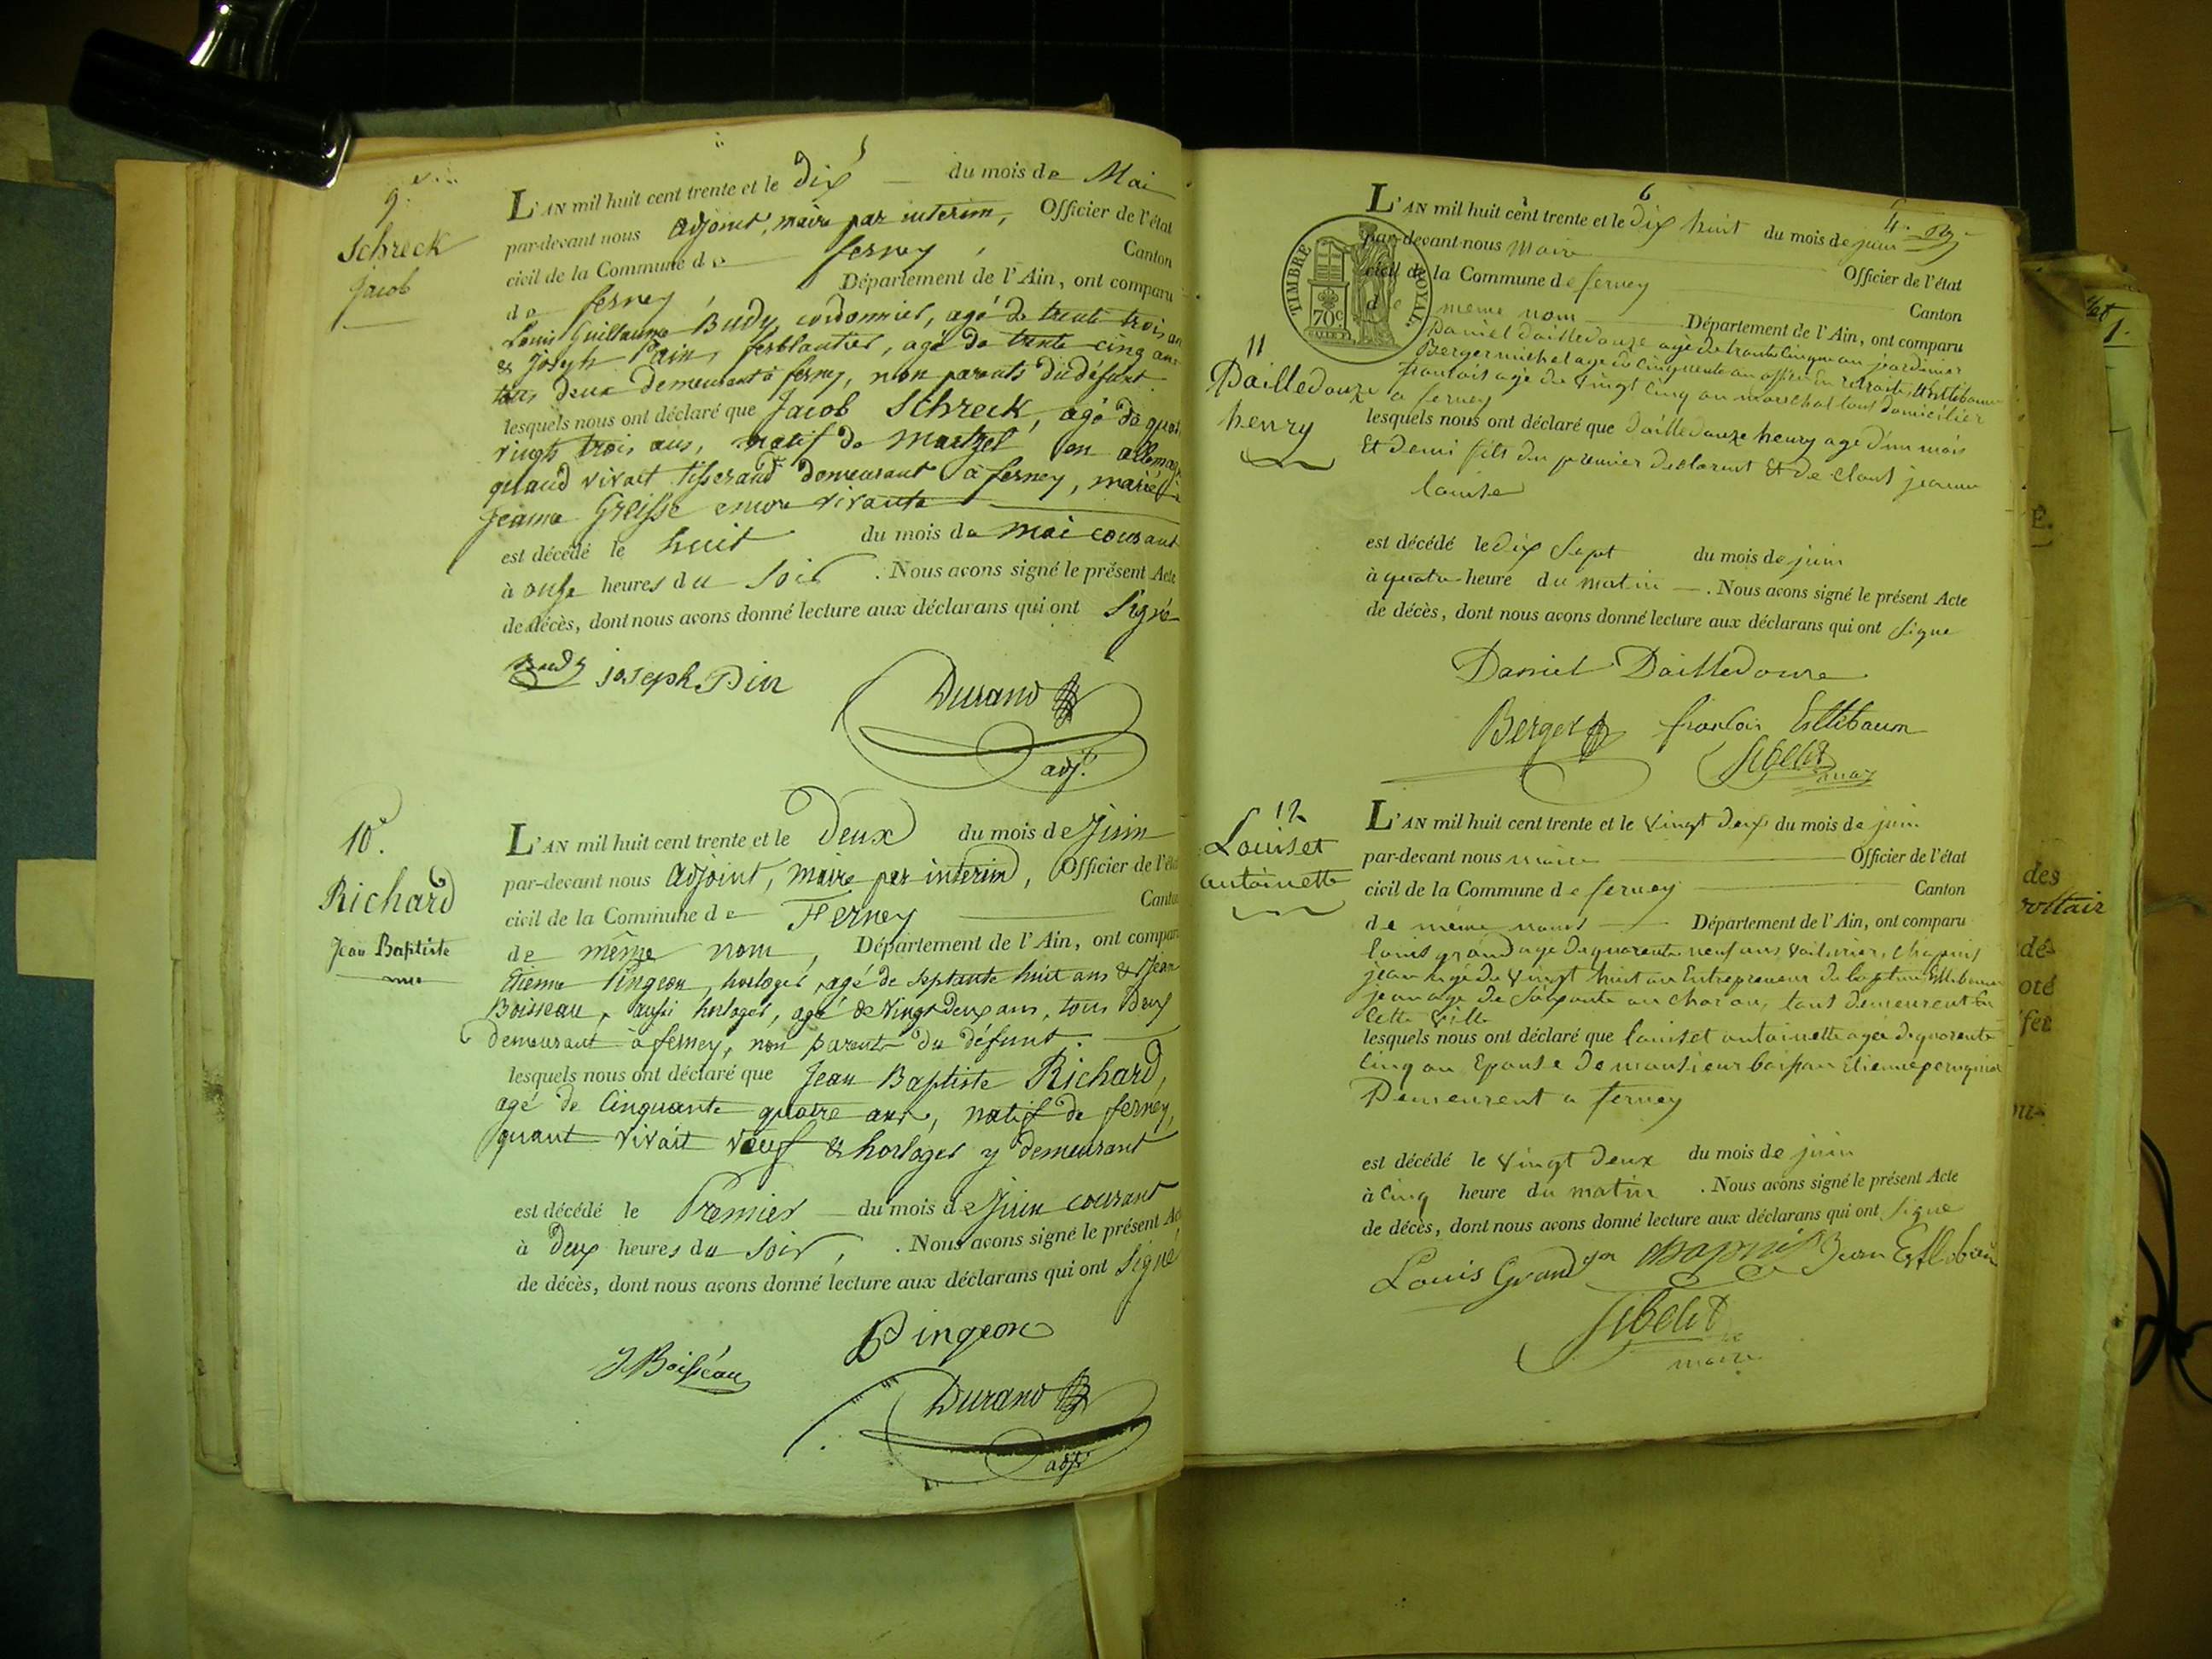 9.
Schreck
Jacob
L'AN mil huit cent trente et le dix du mois de Mai
par-devant nous adjoint, maire par interim, Officier de l'état
civil de la Commune de ferney, Canton
de ferney Département de l'Ain, ont comparu
Louis Guillaume Budy cordonnier, agé de trente trois an
& Joseph Pain, ferblantier, agé de trente cinq ans
tous deux demeurant à ferney, non parents du défunt
lesquels nous ont déclaré que Jacob Schreck, agé de quat
vingts trois ans, natif de Martzel en allemag
quand vivait tisserand demeurant à ferney, marié à
Jeanne Greisse encore vivante
est décédé le huit du mois de mai courant
à onse heures du soir. Nous avons signé le présent Acte
de décès, dont nous avons donné lecture aux déclarans qui ont signé
Budy joseph Pin
Durand
adj.
10.
Richard
Jean Baptiste
L'AN mil huit cent trente et le Deux du mois de Juin
par-devant nous adjoint, maire par interim, Officier de l'éta
civil de la Commune de Ferney Canton
de même nom, Département de l'Ain, ont compar
Etienne Pingeon, horloger, agé de septante huit ans & Jean
Boisseau, aussi horloger, agé de Vingt Deux ans, tous Deux
demeurant à ferney, non parents du défunt.
lesquels nous ont déclaré que Jean Baptiste Richard,
agé de Cinquante quatre ans, natif de ferney,
quant vivait veuf & horloger y demeurant
est décédé le Premier du mois de Juin courant
à Deux heures du soir, . Nous avons signé le présent Ac
de décès, dont nous avons donné lecture aux déclarans qui ont signé
Pingeon
J Boisseau
Durand
adjt
6
4e
TIMBRE ROYAL.
70c
11
Dailledouze
henry
L'AN mil huit cent trente et le dix huit du mois de juin
par-devant nous maire Officier de l'état
civil de la Commune de ferney Canton
de meme nom Département de l'Ain, ont comparu
Daniel dailledouze agé de trante Cinque an jeardinier
Berger michel age de Cinquente an offisié En retraite, Estlibaum
francois agé de vingt Cinq an marechal tous domicilier
a ferney
lesquels nous ont déclaré que dailledouze henry age d'un mois
Et demi fils du premier declarent Et de clout jeanne
louise
est décédé le dix sept du mois de juin
à quatre heure du matin . Nous avons signé le présent Acte
de décès, dont nous avons donné lecture aux déclarans qui ont signe
Daniel Dailledouze
Berger francois Estlibaum
12
Louiset
antoinette
L'AN mil huit cent trente et le vingt deux du mois de juin
par-devant nous maire Officier de l'état
civil de la Commune de ferney Canton
de meme noms Département de l'Ain, ont comparu
louis grand age de quarente neuf ans voiturier, chapuis
jean agé de vingt huit an Entrepreneur de
jean age de soixante an charon, tout demeurent En
Cette ville
lesquels nous ont déclaré que louiset antoinette agée de quarente
Cinq an Epouse de monsieur Etienne
Demeurent a ferney
est décédé le vingt deux du mois de juin
à Cinq heure du matin . Nous avons signé le présent Acte
de décès, dont nous avons donné lecture aux déclarans qui ont signe
Louis Grand jean chapuis Jean Estlibaum
maire